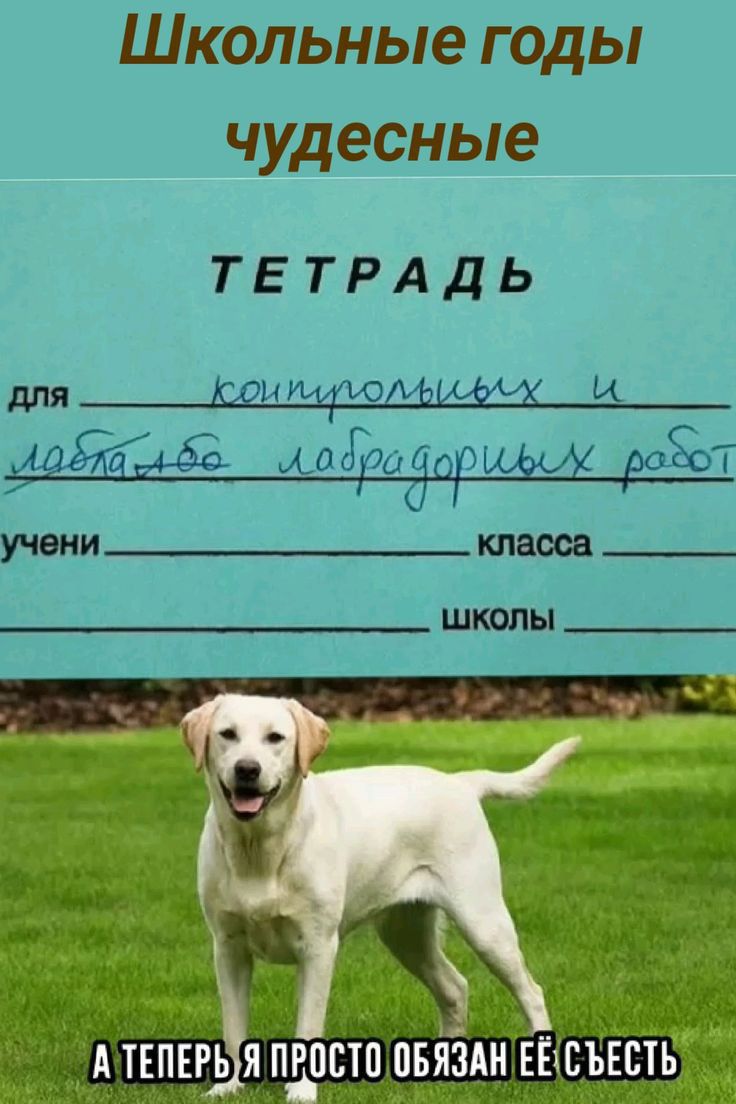 Школьные годы
чудесные
ТЕТРАДЬ
для контрольных и
лабрадорных работ
учени класса
школы
А ТЕПЕРЬ Я ПРОСТО ОБЯЗАН ЕЁ СЪЕСТЬ